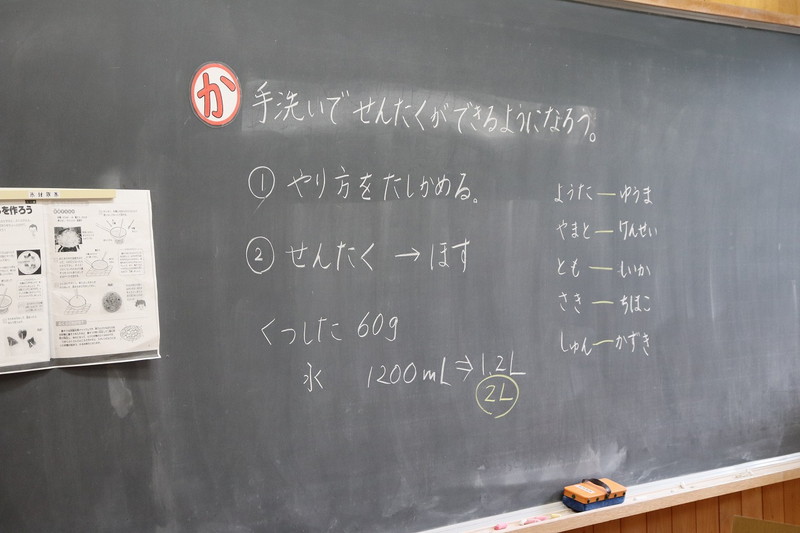 か 手洗いでせんたくができるようになろう。
① やり方をたしかめる。
② せんたく → ほす
くつした 60g
水 1200mL ⇒ 1.2L
2L
ようた — ゆうま
やまと — けんせい
とも — しいか
さき — ちほこ
しゅん — かずき
を作ろう